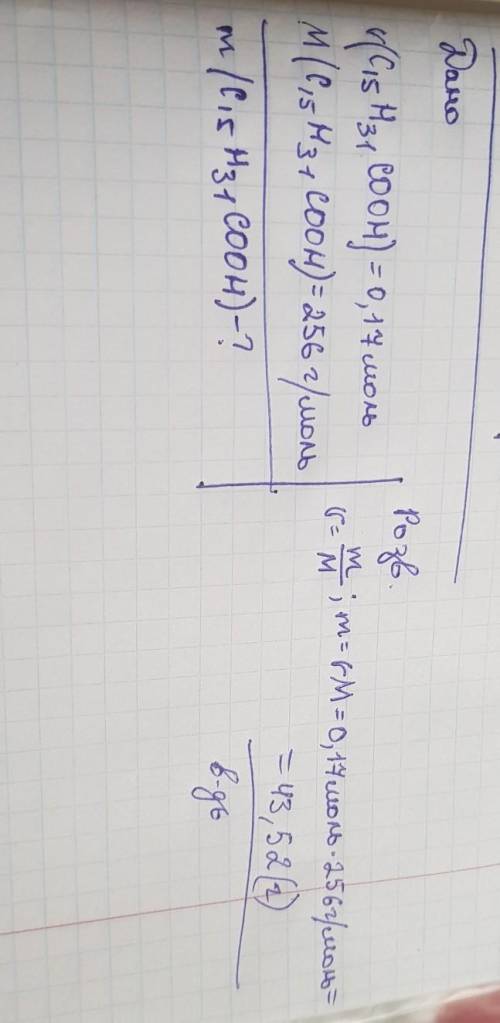 Дано
ν(C₁₅H₃₁COOH) = 0,17 моль
M(C₁₅H₃₁COOH) = 256 г/моль
m(C₁₅H₃₁COOH) - ?
Розв.
ν = m/M ; m = νM = 0,17 моль · 256 г/моль =
= 43,52 (г)
в-дь